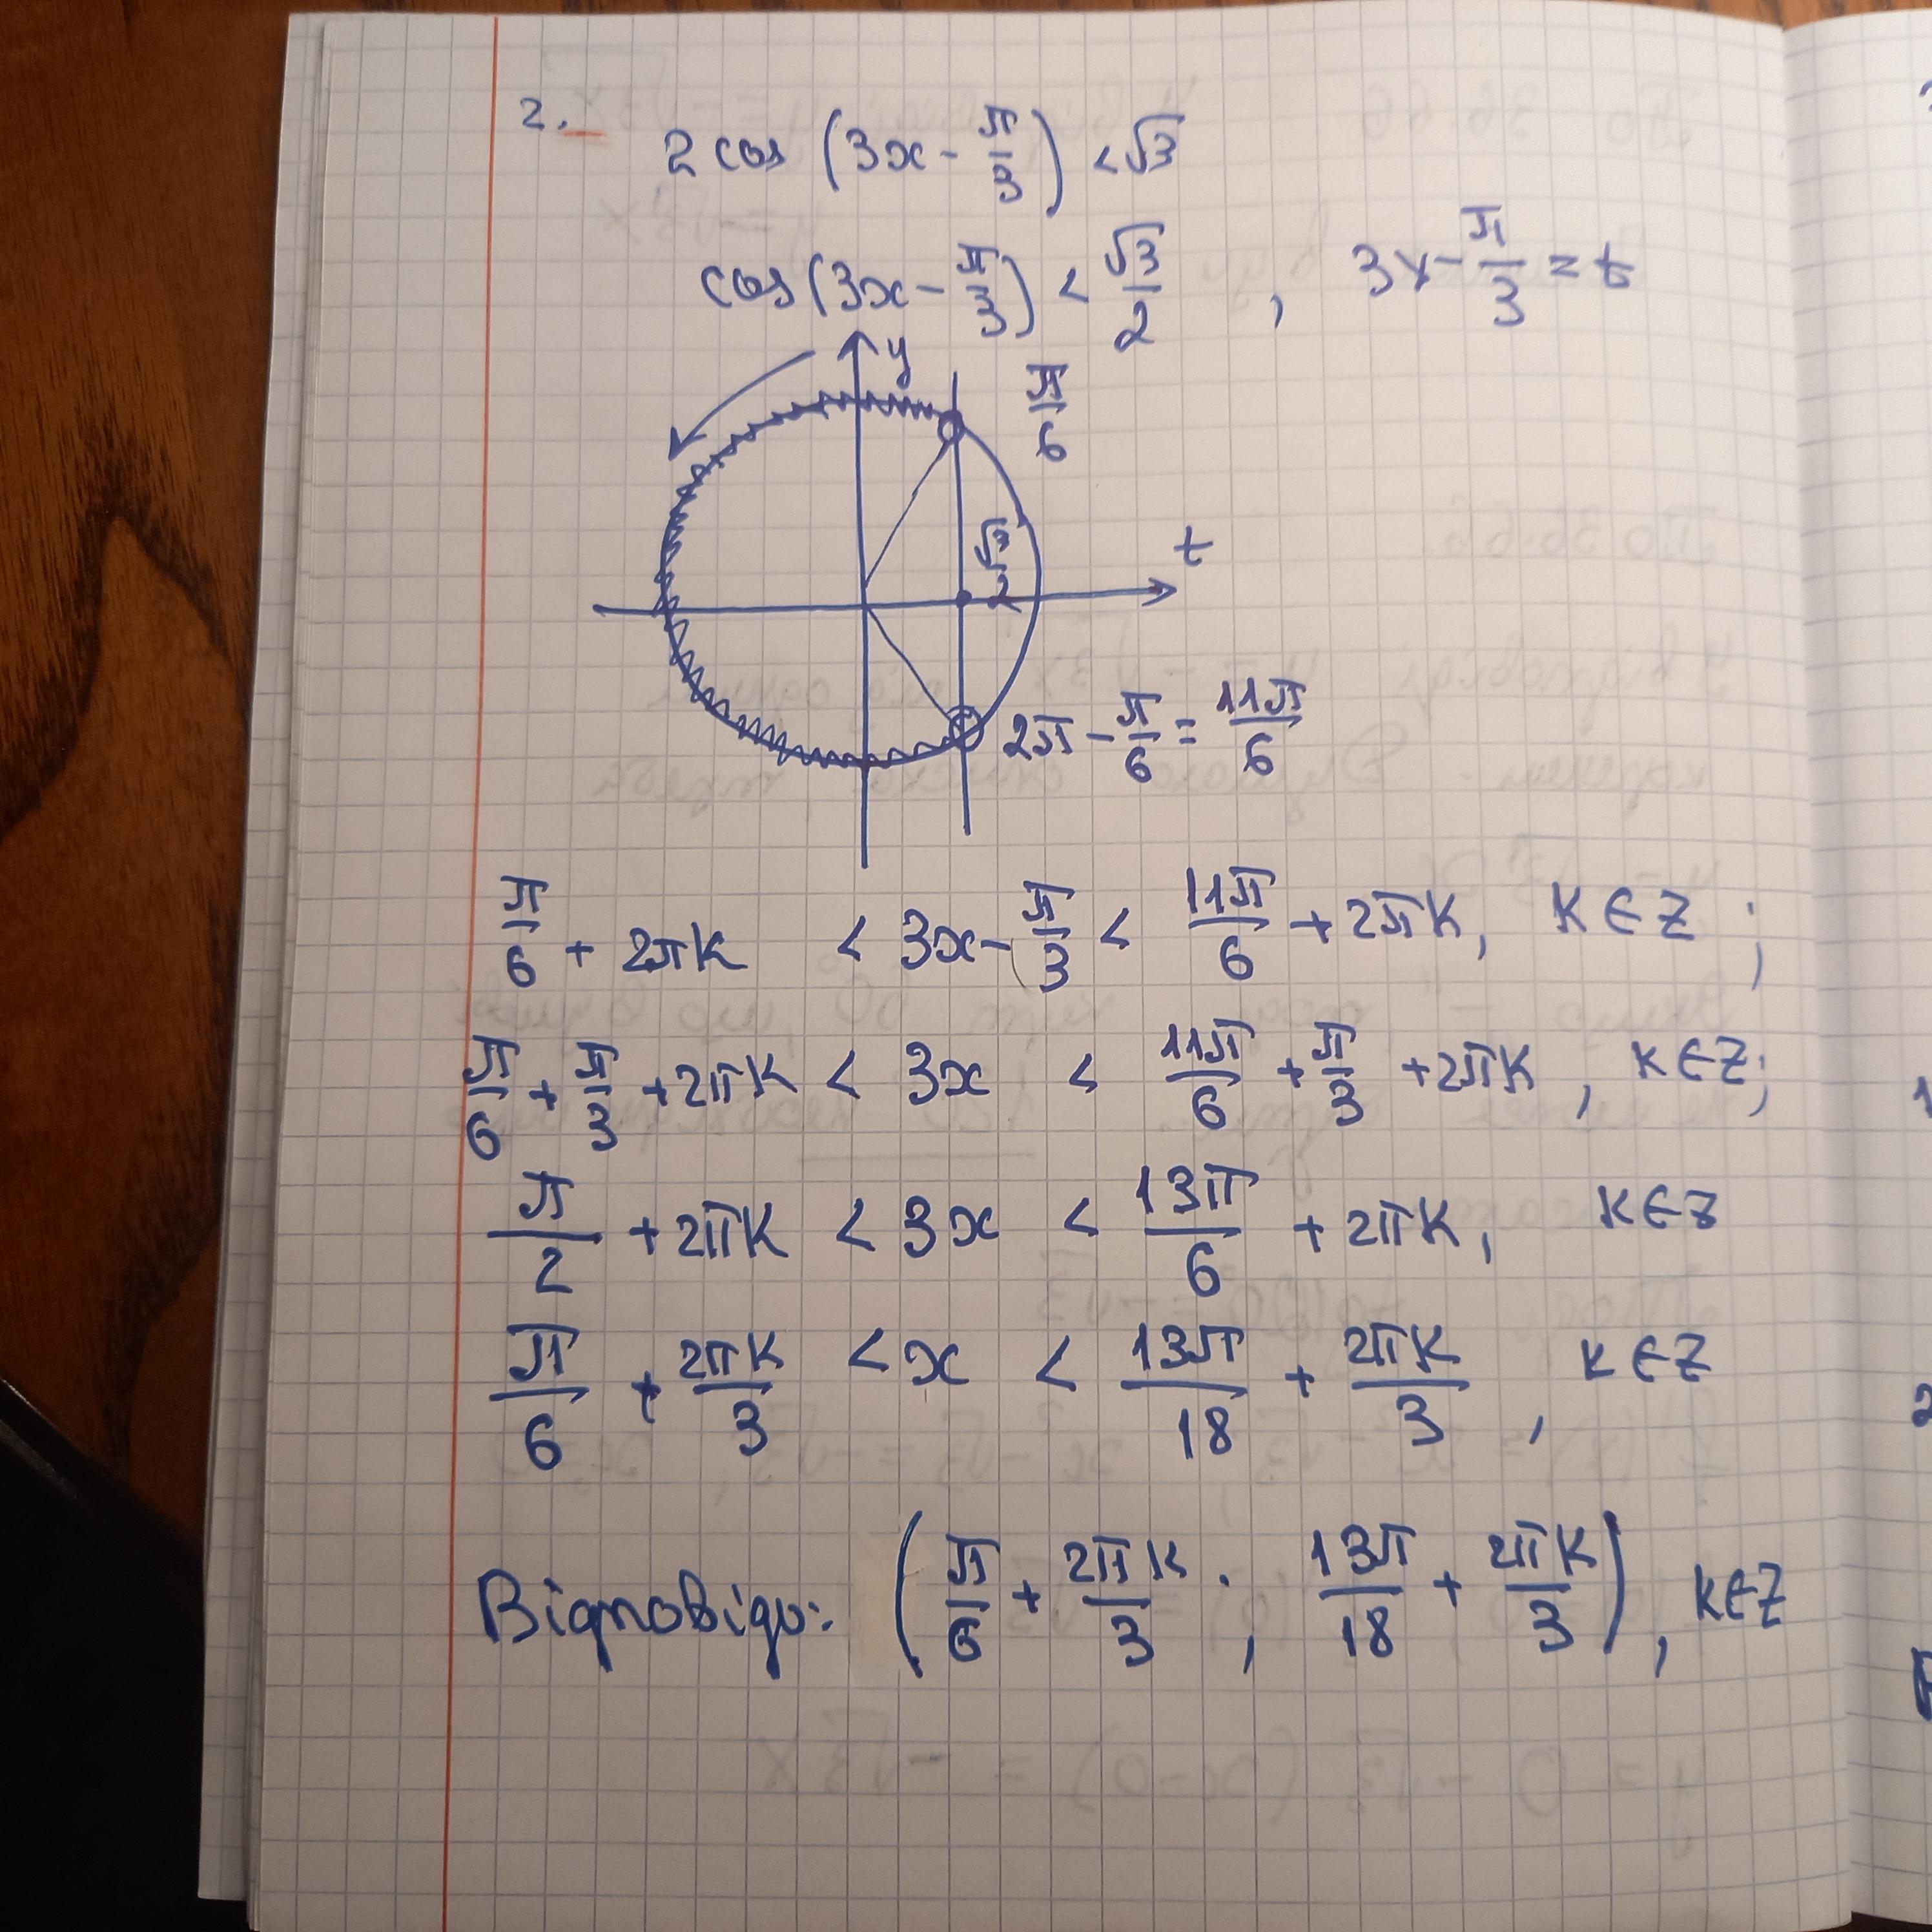 2.
2 cos (3x - π/3) < √3
cos(3x - π/3) < √3/2 , 3x - π/3 = t
y
π/6
√3/2
t
2π - π/6 = 11π/6
π/6 + 2πk < 3x - π/3 < 11π/6 + 2πk, k ∈ Z ;
π/6 + π/3 + 2πk < 3x < 11π/6 + π/3 + 2πk , k ∈ Z;
π/2 + 2πk < 3x < 13π/6 + 2πk, k ∈ Z
π/6 + 2πk/3 < x < 13π/18 + 2πk/3 , k ∈ Z
Відповідь: (π/6 + 2πk/3 ; 13π/18 + 2πk/3), k ∈ Z